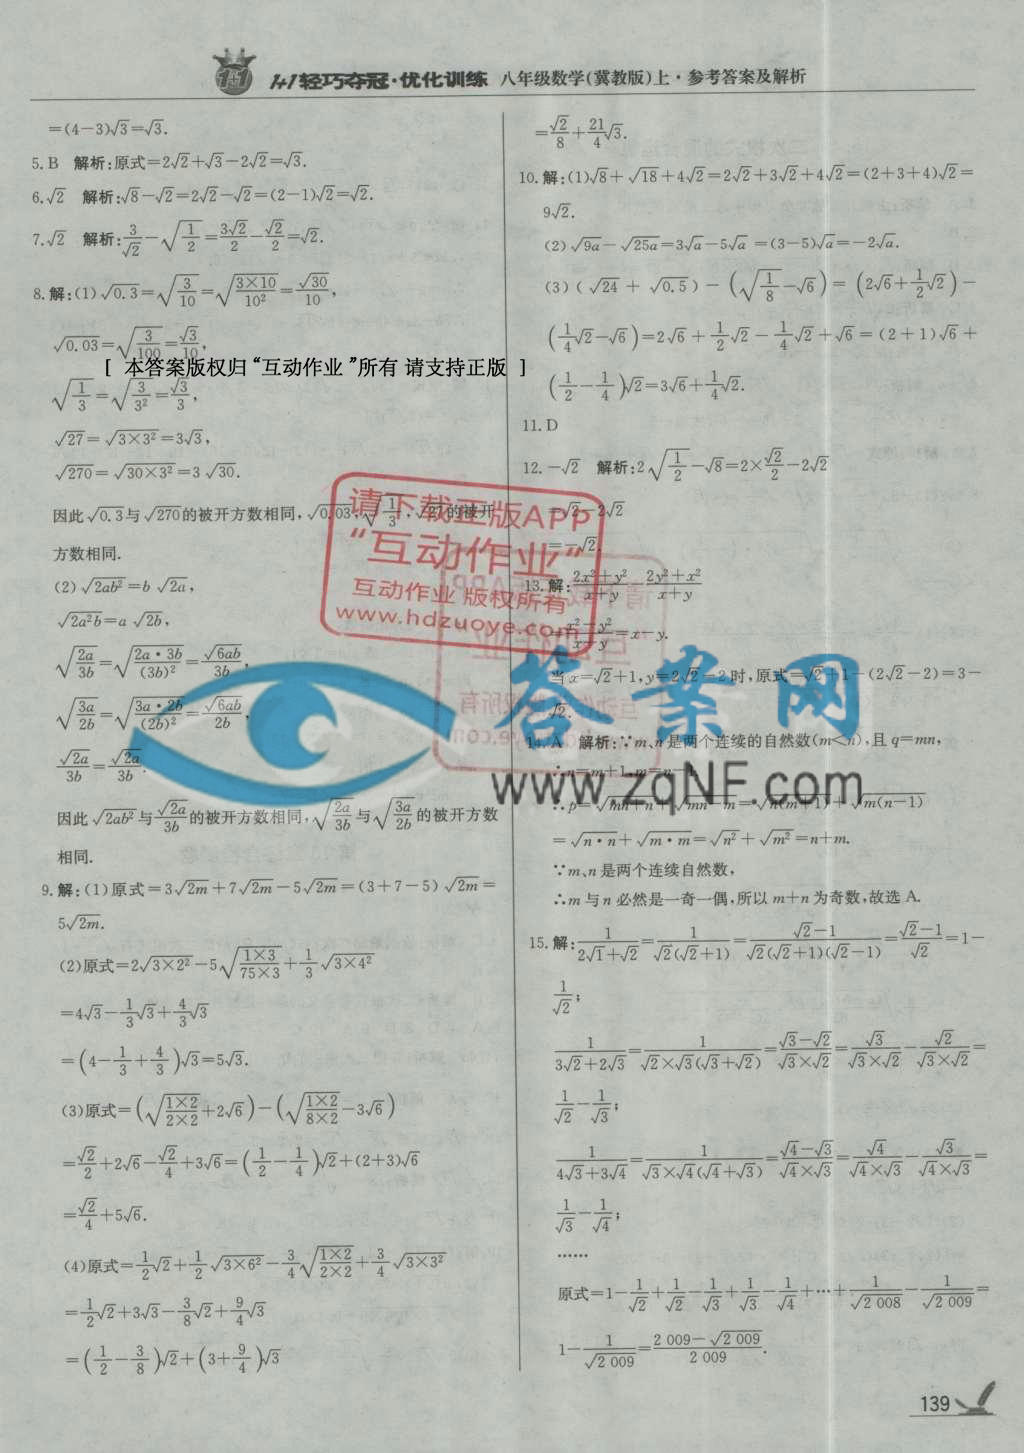 1+1轻巧夺冠·优化训练 八年级数学(冀教版)上·参考答案及解析
=(4-3)√3=√3.
5.B 解析:原式=2√2+√3-2√2=√3.
6.√2 解析:√8-√2=2√2-√2=(2-1)√2=√2.
7.√2 解析:3/√2-√(1/2)=3√2/2-√2/2=√2.
8.解:(1)√0.3=√(3/10)=√(3×10/10²)=√30/10,
√0.03=√(3/100)=√3/10,
[ 本答案版权归“互动作业 ”所有 请支持正版 ]
√(1/3)=√(3/3²)=√3/3,
√27=√(3×3²)=3√3,
√270=√(30×3²)=3√30.
因此√0.3与√270的被开方数相同,√0.03,√(1/3),√27的被开
方数相同.
(2)√(2ab²)=b√(2a),
√(2a²b)=a√(2b),
√(2a/3b)=√(2a·3b/(3b)²)=√(6ab)/3b,
√(3a/2b)=√(3a·2b/(2b)²)=√(6ab)/2b,
√(2a)/3b=√(2a)/3b.
因此√(2ab²)与√(2a)/3b的被开方数相同,√(2a/3b)与√(3a/2b)的被开方数
相同.
9.解:(1)原式=3√(2m)+7√(2m)-5√(2m)=(3+7-5)√(2m)=
5√(2m).
(2)原式=2√(3×2²)-5√(1×3/75×3)+1/3√(3×4²)
=4√3-1/3√3+4/3√3
=(4-1/3+4/3)√3=5√3.
(3)原式=(√(1×2/2×2)+2√6)-(√(1×2/8×2)-3√6)
=√2/2+2√6-√2/4+3√6=(1/2-1/4)√2+(2+3)√6
=√2/4+5√6.
(4)原式=1/2√2+1/2√(3×6²)-3/4√(1×2/2×2)+3/4√(3×3²)
=1/2√2+3√3-3/8√2+9/4√3
=(1/2-3/8)√2+(3+9/4)√3
=√2/8+21/4√3.
10.解:(1)√8+√18+4√2=2√2+3√2+4√2=(2+3+4)√2=
9√2.
(2)√(9a)-√(25a)=3√a-5√a=(3-5)√a=-2√a.
(3)(√24+√0.5)-(√(1/8)-√6)=(2√6+1/2√2)-
(1/4√2-√6)=2√6+1/2√2-1/4√2+√6=(2+1)√6+
(1/2-1/4)√2=3√6+1/4√2.
11.D
12.-√2 解析:2√(1/2)-√8=2×√2/2-2√2
=√2-2√2
=-√2.
13.解:2x²+y²/x+y 2y²+x²/x+y
=x²-y²/x+y=x-y.
当x=√2+1,y=2√2-2时,原式=√2+1-(2√2-2)=3-
√2.
14.A 解析:∵m、n是两个连续的自然数(m<n),且q=mn,
∴n=m+1,m=n-1,
∴p=√(mn+n)+√(mn-m)=√(n(m+1))+√(m(n-1))
=√(n·n)+√(m·m)=√n²+√m²=n+m.
∵m、n是两个连续自然数,
∴m与n必然是一奇一偶,所以m+n为奇数,故选A.
15.解:1/(2√1+√2)=1/(√2(√2+1))=(√2-1)/(√2(√2+1)(√2-1))=(√2-1)/√2=1-
1/√2;
1/(3√2+2√3)=1/(√2×√3(√3+√2))=(√3-√2)/(√3×√2)=√3/(√3×√2)-√2/(√3×√2)=
1/√2-1/√3;
1/(4√3+3√4)=1/(√3×√4(√4+√3))=(√4-√3)/(√4×√3)=√4/(√4×√3)-√3/(√4×√3)=
1/√3-1/√4;
……
原式=1-1/√2+1/√2-1/√3+1/√3-1/√4+…+1/√2 008-1/√2 009=
1-1/√2 009=(2 009-√2 009)/2 009.
请下载正版APP
“互动作业”
互动作业 版权所有
www.hdzuoye.com
答案网
www.zqNF.com
139